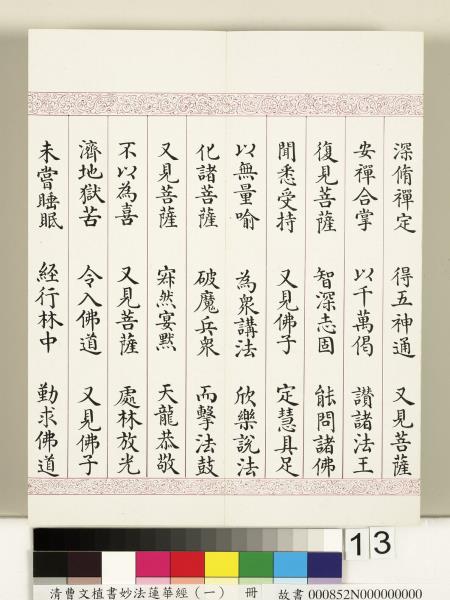 深脩禪定　得五神通　又見菩薩
安禪合掌　以千萬偈　讚諸法王
復見菩薩　智深志固　能問諸佛
聞悉受持　又見佛子　定慧具足
以無量喻　為衆講法　欣樂說法
化諸菩薩　破魔兵衆　而擊法鼓
又見菩薩　寂然宴默　天龍恭敬
不以為喜　又見菩薩　處林放光
濟地獄苦　令入佛道　又見佛子
未嘗睡眠　經行林中　勤求佛道
13
清曹文埴書妙法蓮華經(一)　冊　故書 000852N000000000